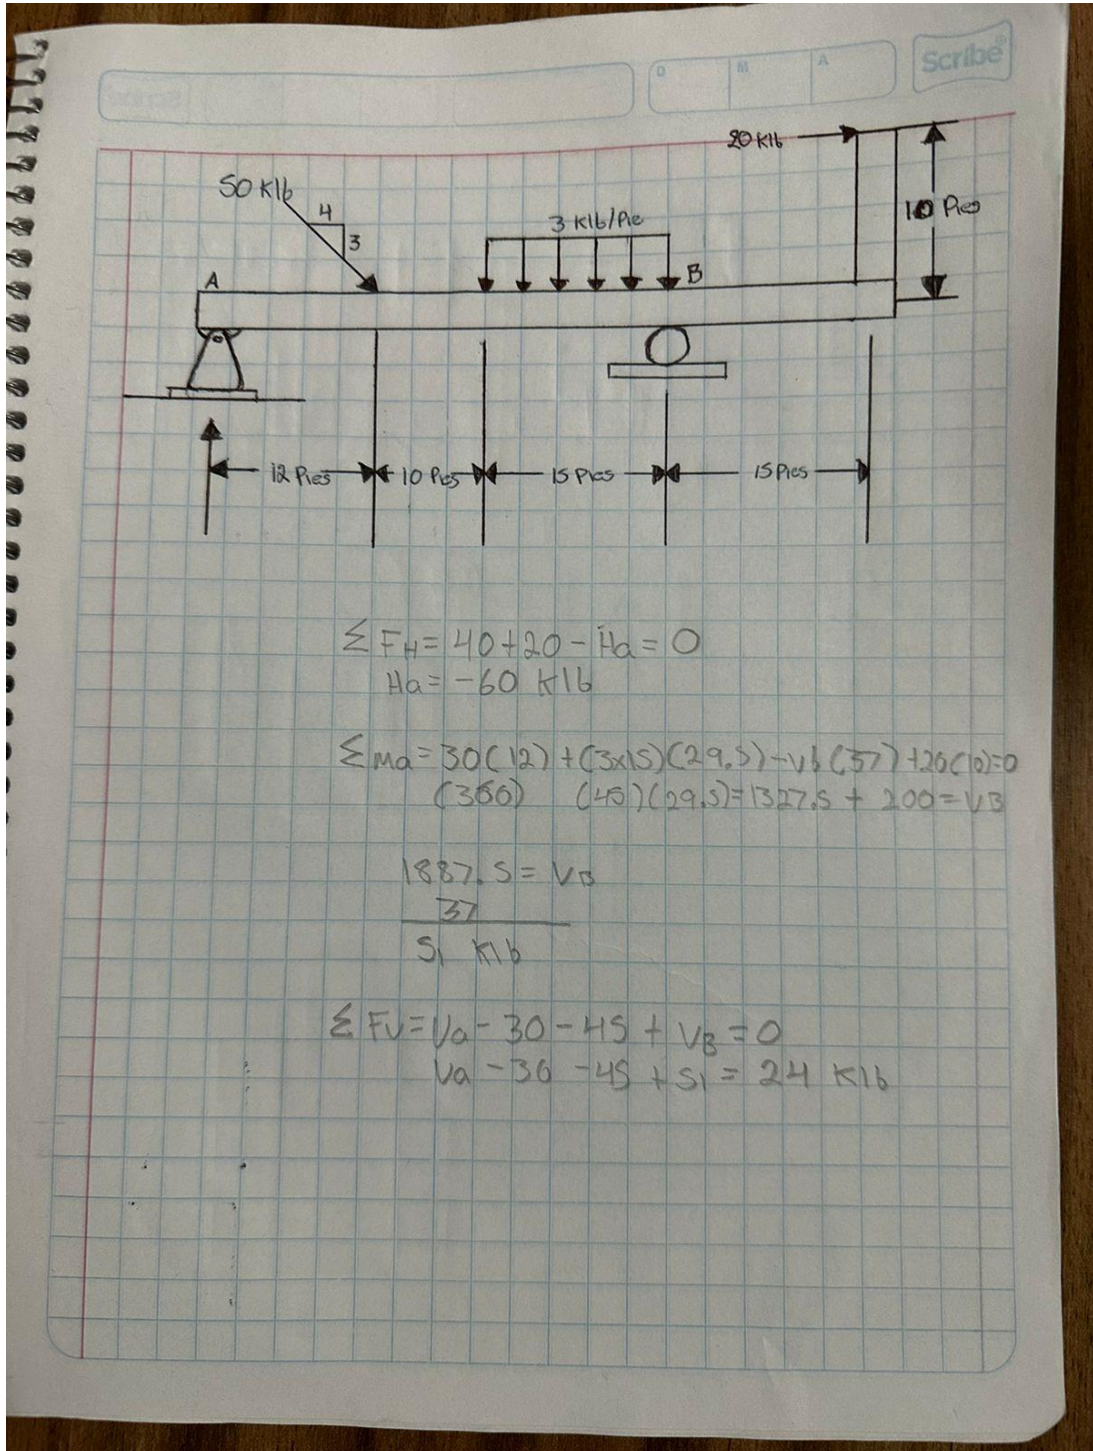 Scribe
D M A
20 Klb
50 Klb
4
3
3 Klb/Pie
10 Pies
A
B
12 Pies 10 Pies 15 Pies 15 Pies
Σ FH = 40+20 - Ha = 0
Ha = -60 Klb
Σ Ma = 30(12) + (3x15)(29.5) - Vb(37) + 20(10)=0
(360) (45)(29.5)=1327.5 + 200=VB
1887.5 = VB
37
51 Klb
Σ FV = Va - 30 - 45 + VB = 0
Va - 30 - 45 + 51 = 24 Klb